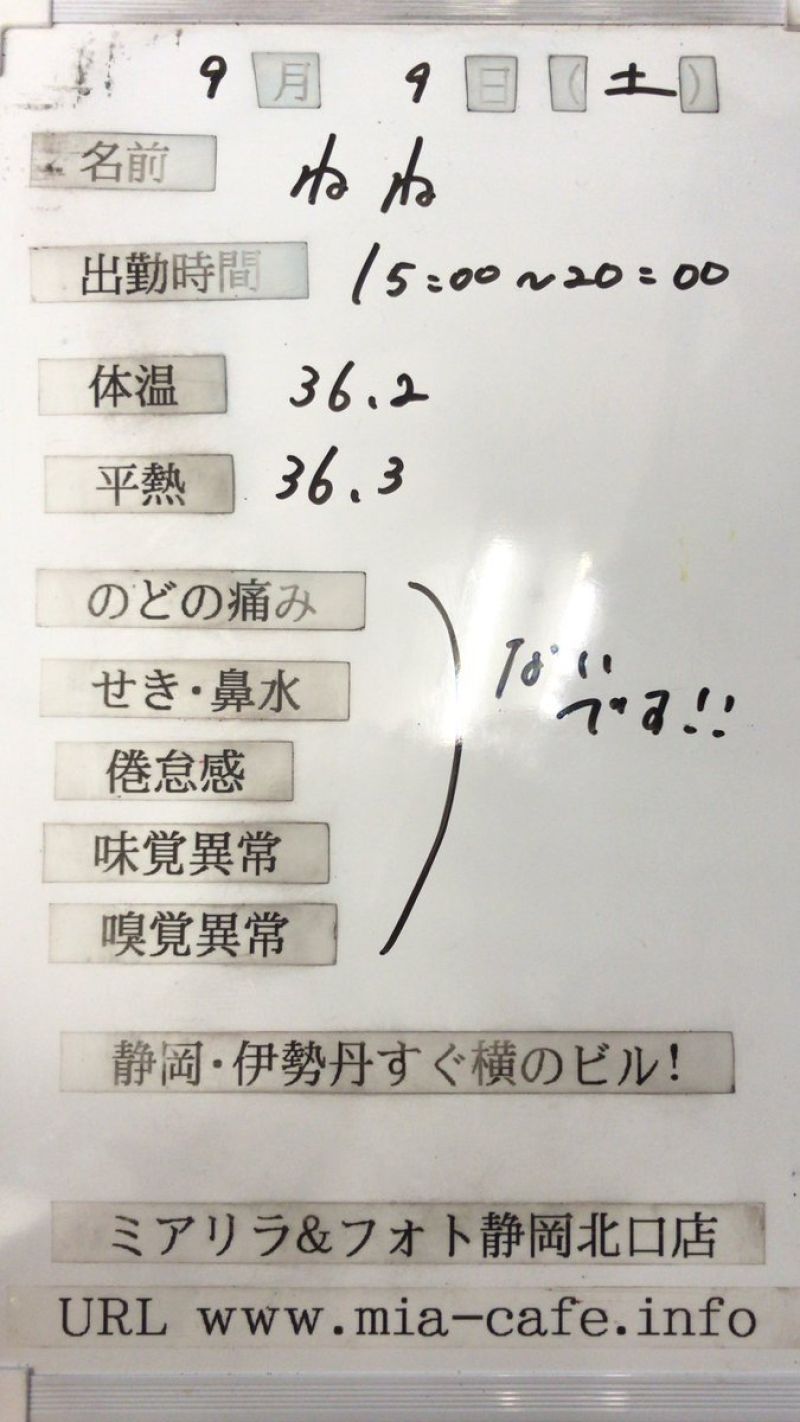 9月 9日(土)
名前 ねね
出勤時間 15:00～20:00
体温 36.2
平熱 36.3
のどの痛み
せき・鼻水
ないです!!
倦怠感
味覚異常
嗅覚異常
静岡・伊勢丹すぐ横のビル!
ミアリラ&フォト静岡北口店
URL www.mia-cafe.info